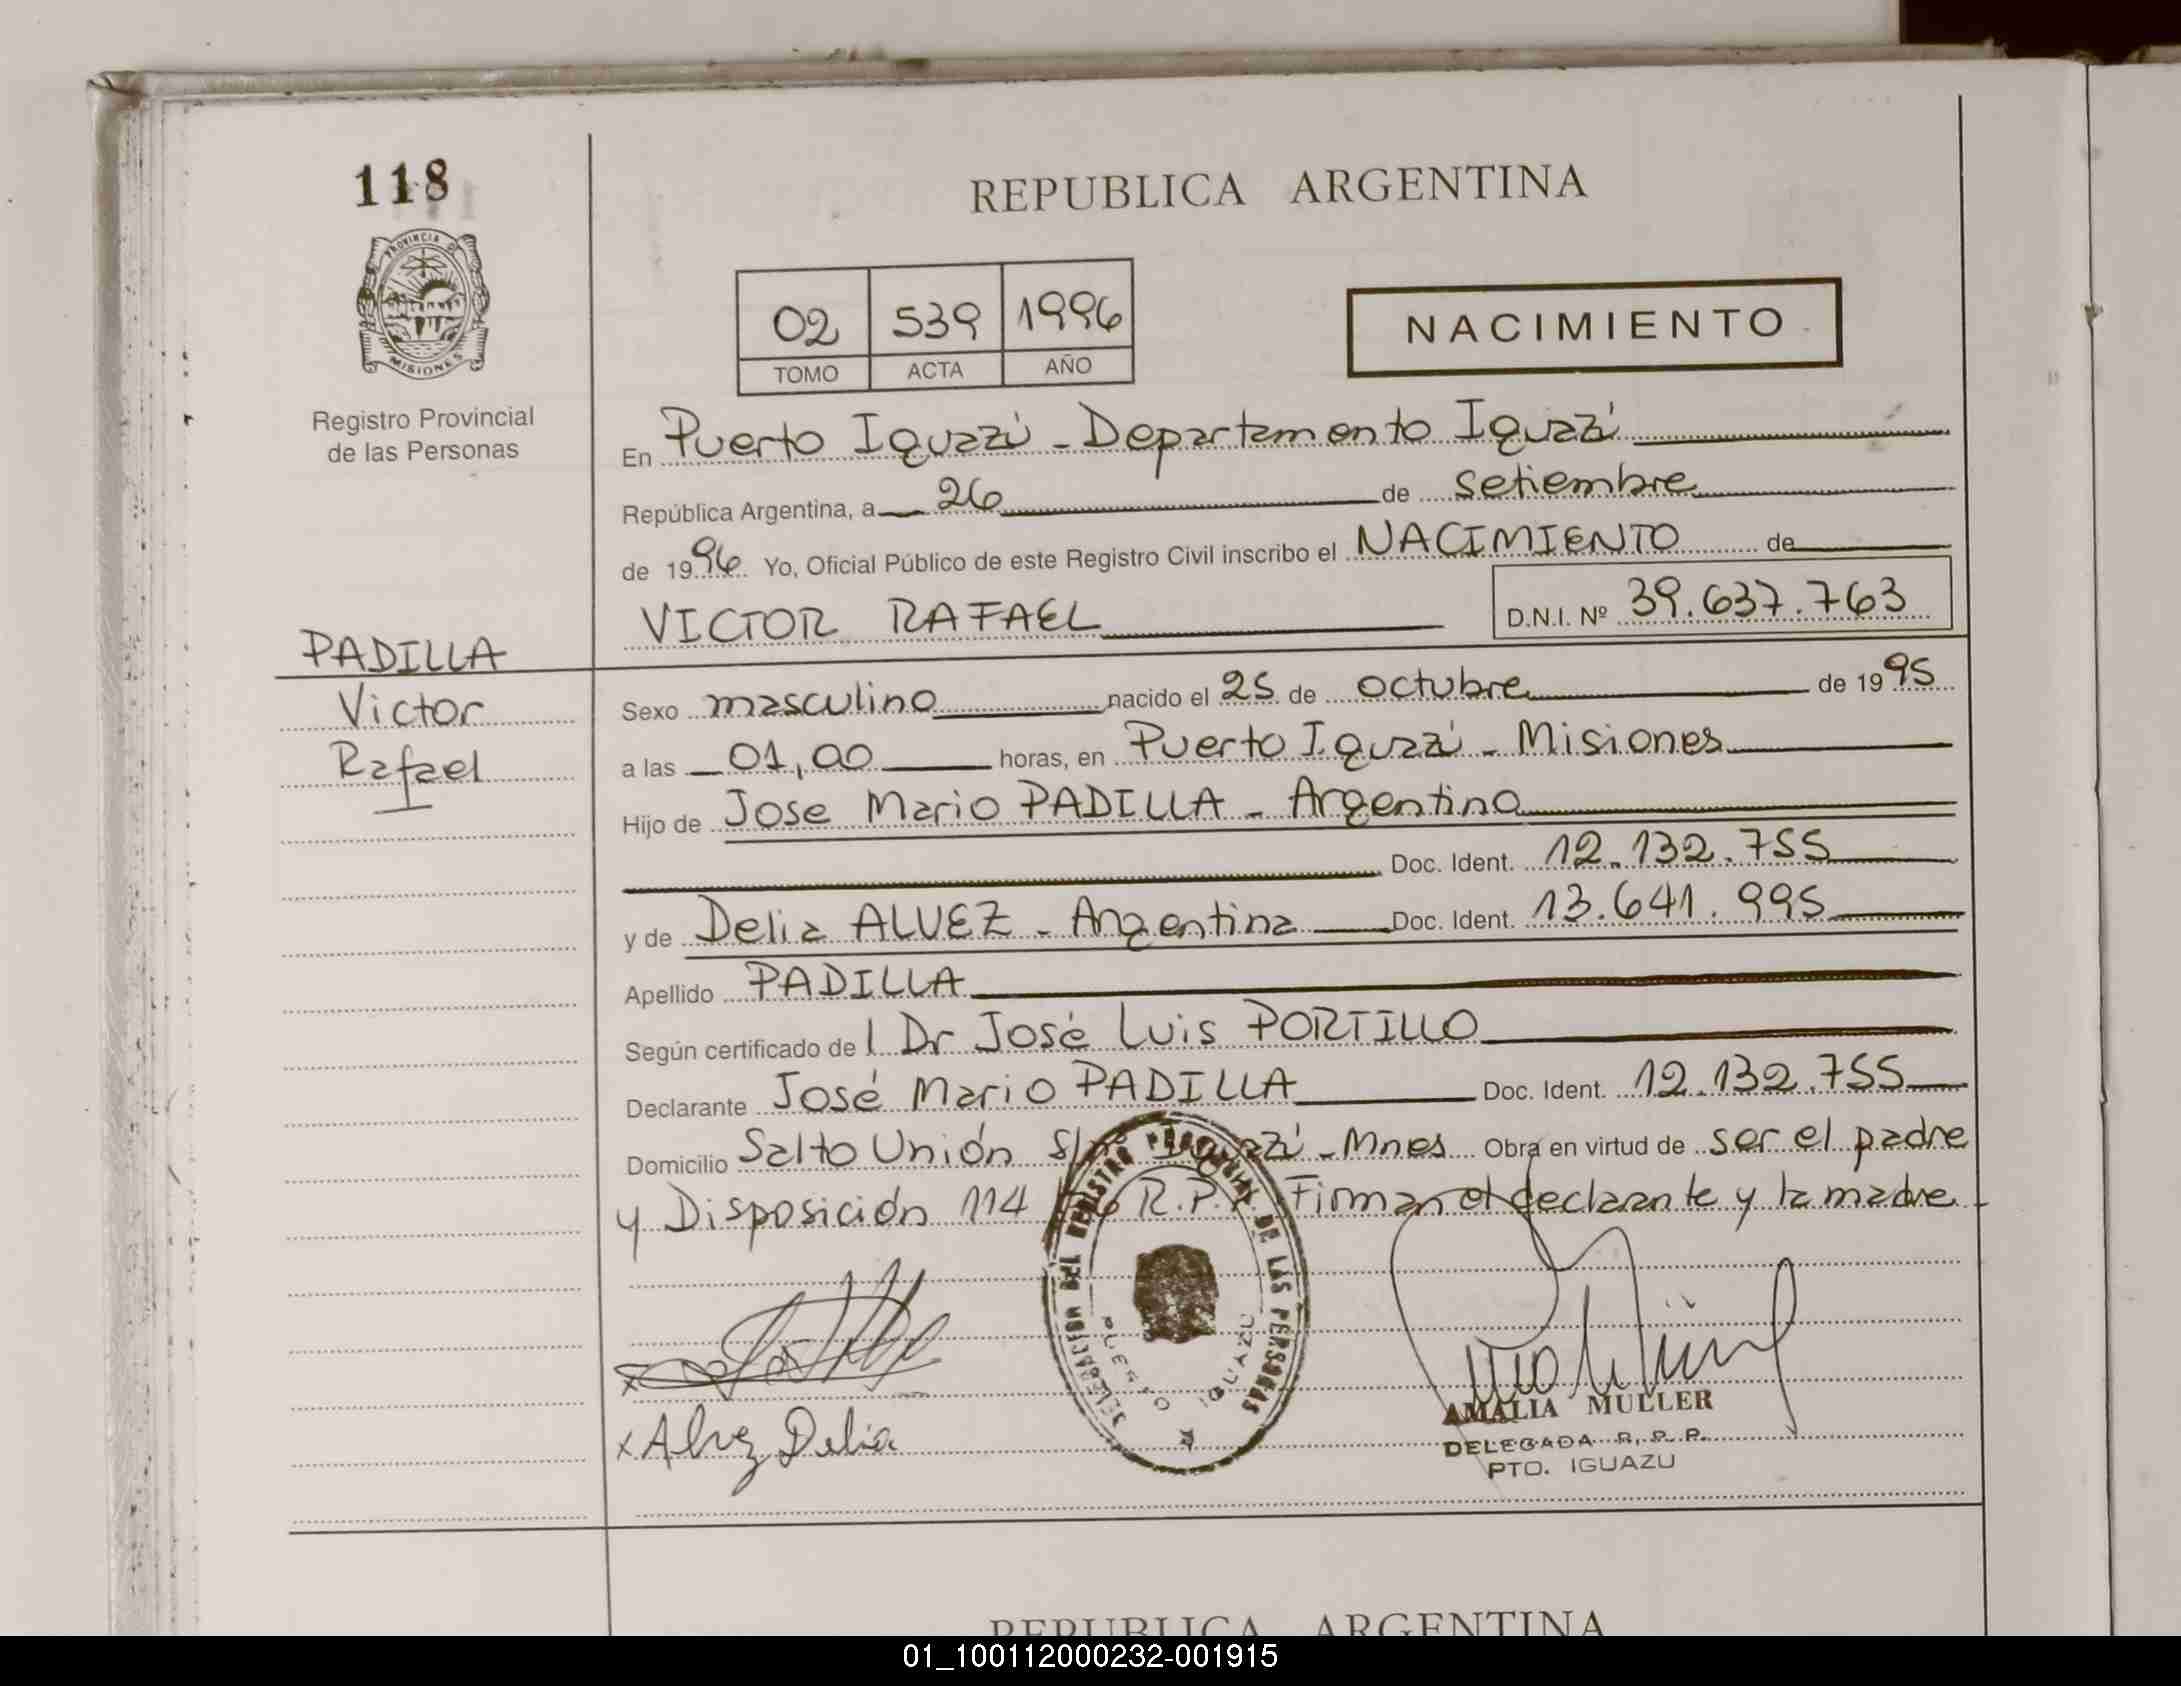 118
REPUBLICA ARGENTINA
PROVINCIA DE
MISIONES
02 539 1996
TOMO ACTA AÑO
NACIMIENTO
Registro Provincial
de las Personas
En Puerto Iguazú - Departamento Iguazú
República Argentina, a 26 de setiembre
de 1996 Yo, Oficial Público de este Registro Civil inscribo el NACIMIENTO de
VICTOR RAFAEL D.N.I. Nº 39.637.763
PADILLA
Victor
Rafael
Sexo masculino nacido el 25 de octubre de 1995
a las 01,00 horas, en Puerto Iguazú - Misiones
Hijo de Jose Mario PADILLA - Argentino
Doc. Ident. 12.132.755
y de Delia ALVEZ - Argentina Doc. Ident. 13.641.995
Apellido PADILLA
Según certificado del Dr José Luis PORTILLO
Declarante José Mario PADILLA Doc. Ident. 12.132.755
Domicilio Salto Unión s/nº Iguazú - Mnes Obra en virtud de ser el padre
y Disposición 114 R.P.P. Firman el declarante y la madre
DEL REGISTRO PROVINCIAL DE LAS PERSONAS
PUERTO IGUAZU
x Alvez Delia
AMALIA MULLER
DELEGADA R.P.P.
PTO. IGUAZU
REPUBLICA ARGENTINA
01_100112000232-001915